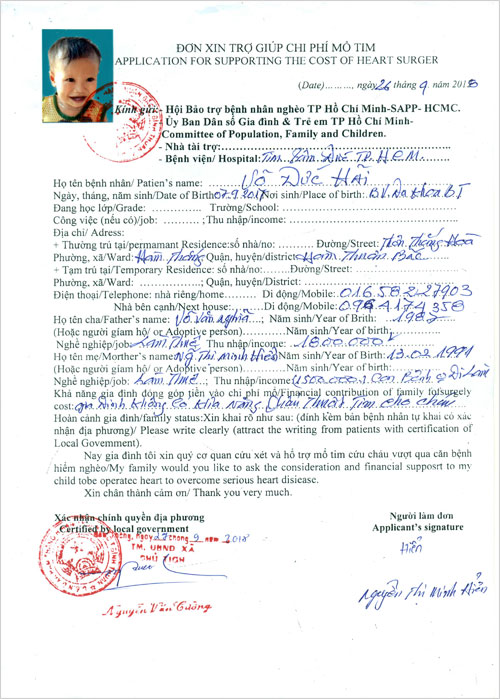 ĐƠN XIN TRỢ GIÚP CHI PHÍ MỔ TIM
APPLICATION FOR SUPPORTING THE COST OF HEART SURGER
(Date)………, ngày 26 tháng 9 năm 2018
Kính gửi: - Hội Bảo trợ bệnh nhân nghèo TP Hồ Chí Minh-SAPP- HCMC.
Ủy Ban Dân số Gia đình & Trẻ em TP Hồ Chí Minh-
Committee of Population, Family and Children.
- Nhà tài trợ:
- Bệnh viện/ Hospital: Tim Tâm Đức TP. HCM
Họ tên bệnh nhân/ Patien's name: Võ Đức Hải
Ngày, tháng, năm sinh/Date of Birth: 07.9.2017 Nơi sinh/Place of birth: B.V. Đa Khoa B.T
Đang học lớp/Grade: Trường/School:
Công việc (nếu có)/job: ; Thu nhập/income:
Địa chỉ/ Adress:
+ Thường trú tại/permamant Residence:số nhà/no: Đường/Street: Thôn Thắng Hoà
Phường, xã/Ward: Hàm Thắng Quận, huyện/district: Hàm Thuận Bắc
+ Tạm trú tại/Temporary Residence: số nhà/no: Đường/Street:
Phường, xã/Ward: ; Quận, huyện/District:
Điện thoại/Telephone: nhà riêng/home Di động/Mobile: 016582 27903
Nhà bên cạnh/Next house: Di động/Mobile: 0964174358
Họ tên cha/Father's name: Võ Văn Nghĩa ; Năm sinh/Year of Birth: 1987
(Hoặc người giám hộ/ or Adoptive person) Năm sinh/Year of birth:
Nghề nghiệp/job: Làm Thuê ; Thu nhập/income: 1800.000đ
Họ tên mẹ/Morther's name: Ng Thị Minh Hiền Năm sinh/Year of Birth: 13.02.1991
(Hoặc người giám hộ/ or Adoptive person) Năm sinh/Year of birth:
Nghề nghiệp/job: Làm Thuê ; Thu nhập/income: 1500.000, Con Bệnh
Khả năng gia đình đóng góp tiền vào chi phí mổ/Financial contribution of family for surgely
cost: gia Đình Không Có Khả Năng Tim Cho Cháu
Hoàn cảnh gia đình/family status:Xin khai rõ như sau: (đính kèm bản bệnh nhân tự khai có xác
nhận địa phương)/ Please write clearly (attract the writing from patients with certification of
Local Goverment).
Nay gia đình tôi xin quý cơ quan cứu xét và hổ trợ mổ tim cứu cháu vượt qua căn bệnh
hiểm nghèo/My family would you like to ask the consideration and financial supposrt to my
child tobe operatec heart to overcome serious heart disiease.
Xin chân thành cám ơn/ Thank you very much.
Xác nhận chính quyền địa phương
Certified by local government
Người làm đơn
Applicant's signature
ngày 27 tháng 9 năm 2018
TM. UBND XÃ
CHỦ TỊCH
Hiền
Nguyễn Văn Cường
Nguyễn Thị Minh Hiền